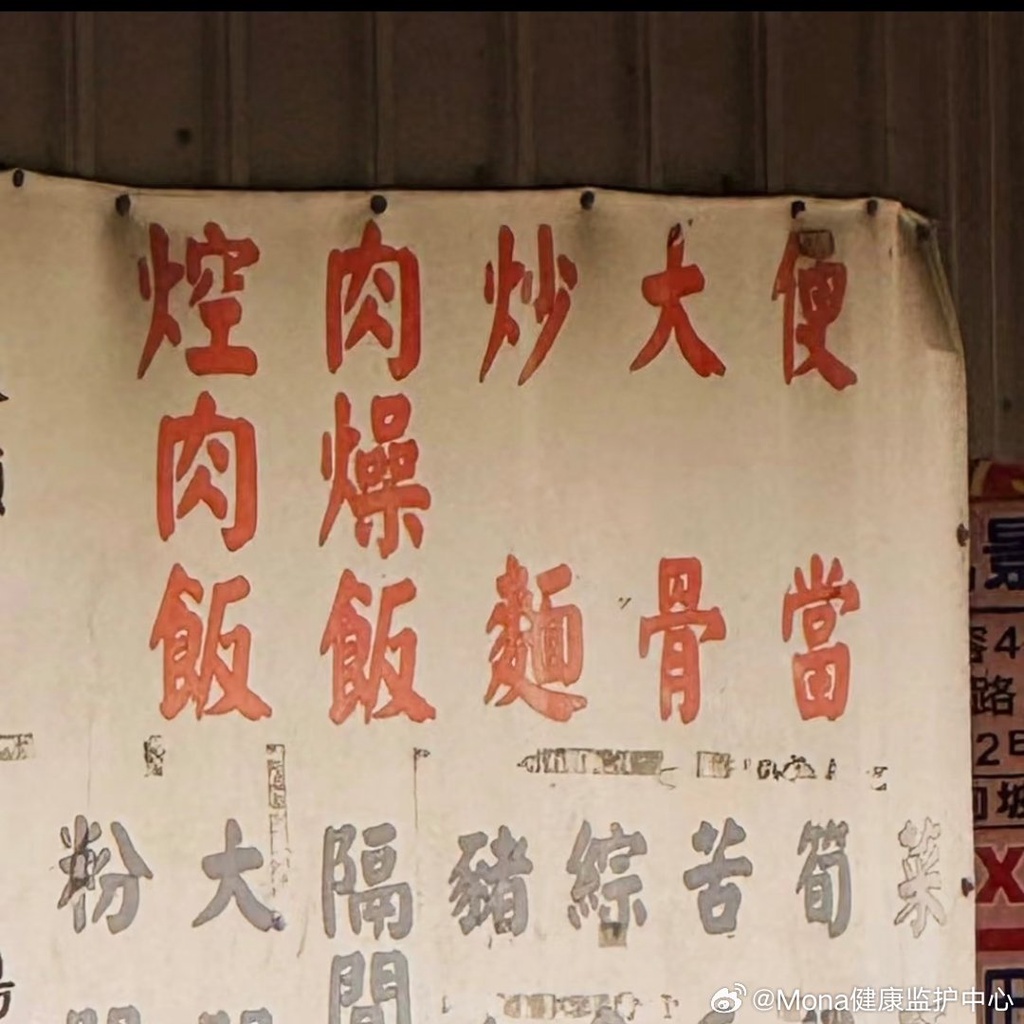 便當
大骨
炒麵
肉燥飯
焢肉飯
菜
筍
苦
綜
豬
隔間
大
粉
@Mona健康监护中心